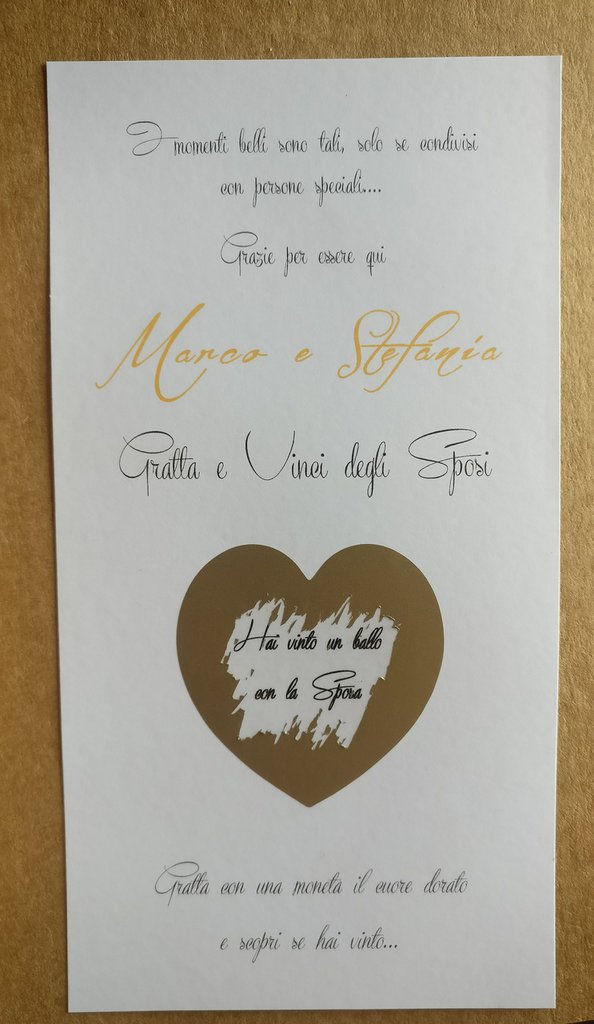 I momenti belli sono tali, solo se condivisi
con persone speciali....
Grazie per essere qui
Marco e Stefania
Gratta e Vinci degli Sposi
Hai vinto un ballo
con la Sposa
Gratta con una moneta il cuore dorato
e scopri se hai vinto...